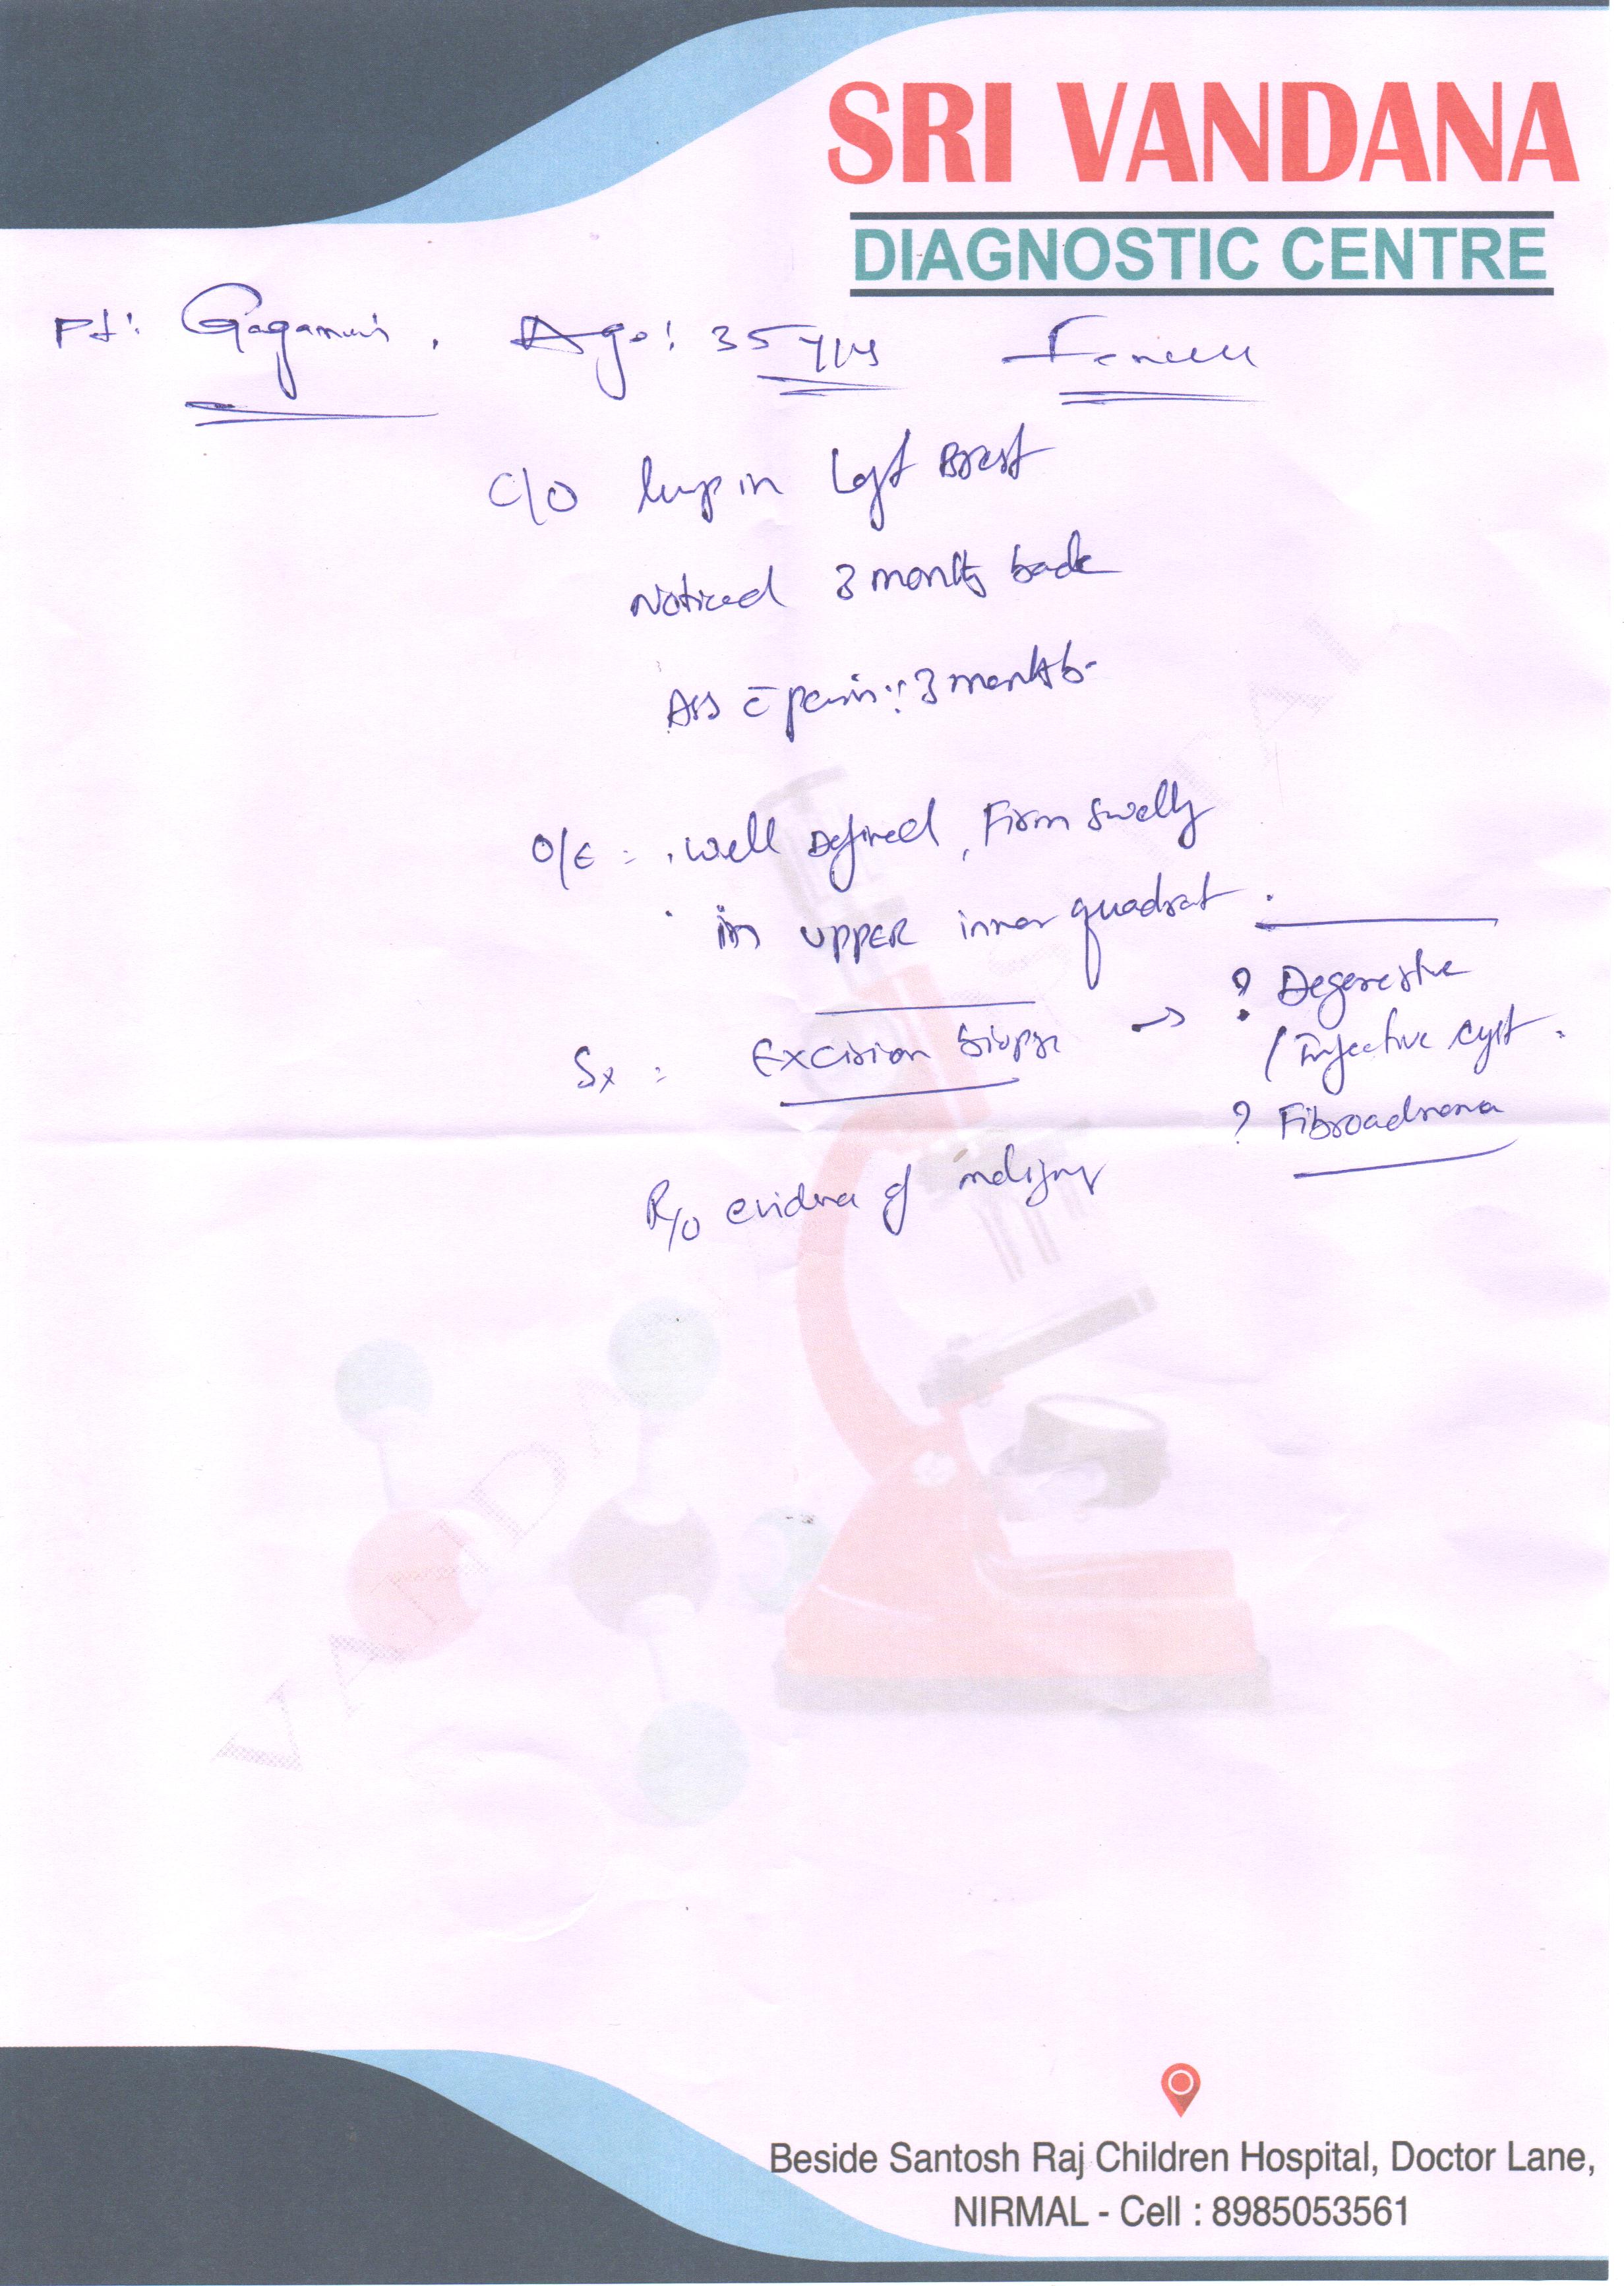 SRI VANDANA
DIAGNOSTIC CENTRE
Pt: Age: 35 yrs
C/O lump in Left Breast
Noticed 3 months back
Ass c̄ pain : 3 months
O/E = well Defined, Firm swelling
in UPPER inner quadrant.
Sx = Excision biopsy → ? Degenerative
/ Infective cyst.
? Fibroadenoma
R/o evidence of malignancy
VANDA
Beside Santosh Raj Children Hospital, Doctor Lane,
NIRMAL - Cell : 8985053561